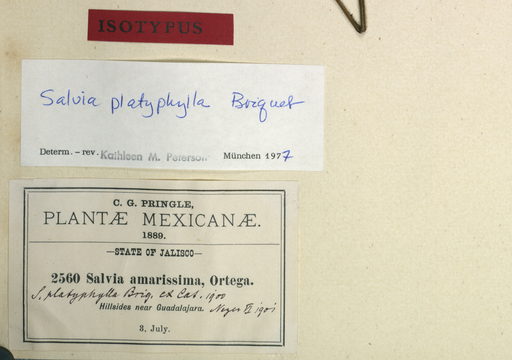 ISOTYPUS
Salvia platyphylla Briquet
Determ. – rev. Kathleen M. Peterson München 1977
C. G. PRINGLE,
PLANTÆ MEXICANÆ.
1889.
—STATE OF JALISCO—
2560 Salvia amarissima, Ortega.
S. platyphylla Briq. ex Cat. 1900
Hillsides near Guadalajara. VI 1901
3, July.